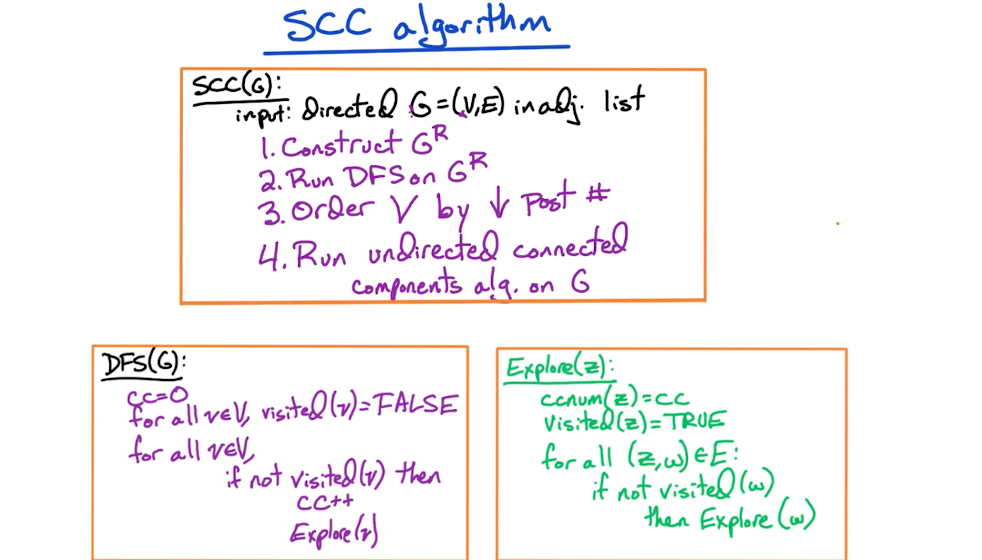 SCC algorithm
SCC(G):
input: directed G=(V,E) in adj. list
1. Construct G^R
2. Run DFS on G^R
3. Order V by ↓ post #
4. Run undirected connected
components alg. on G
DFS(G):
cc=0
for all v∈V, visited(v)=FALSE
for all v∈V,
if not visited(v) then
cc++
Explore(v)
Explore(z):
ccnum(z)=cc
visited(z)=TRUE
for all (z,w)∈E:
if not visited(w)
then Explore(w)